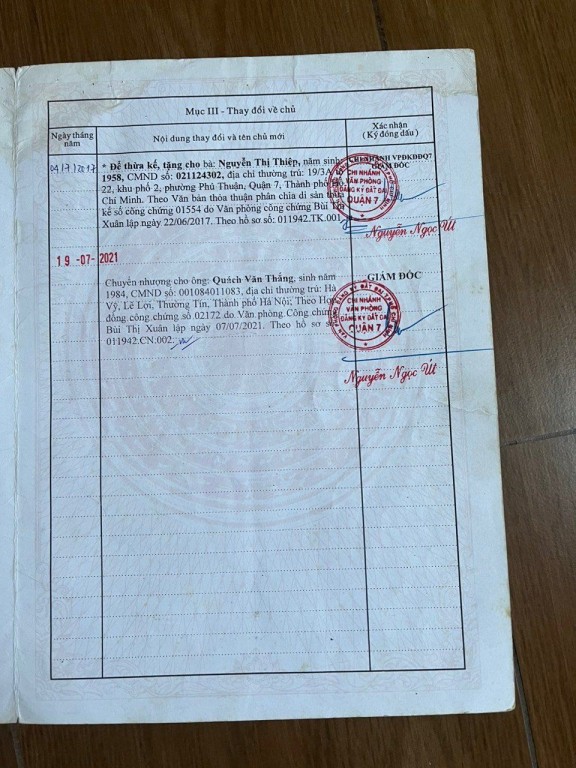 Mục III - Thay đổi về chủ
Ngày tháng năm
Nội dung thay đổi và tên chủ mới
Xác nhận
(Ký đóng dấu)
04/7/2017
* Để thừa kế, tặng cho bà: Nguyễn Thị Thiệp, năm sinh
1958, CMND số: 021124302, địa chỉ thường trú: 19/3A
22, khu phố 2, phường Phú Thuận, Quận 7, Thành phố
Chí Minh. Theo Văn bản thỏa thuận phân chia di sản thừa
kế số công chứng 01554 do Văn phòng công chứng Bùi Thị
Xuân lập ngày 22/06/2017. Theo hồ sơ số: 011942.TK.001
CHI NHÁNH VPĐKĐĐQ7
GIÁM ĐỐC
CHI NHÁNH
VĂN PHÒNG
ĐĂNG KÝ ĐẤT ĐAI
QUẬN 7
Nguyễn Ngọc Út
19-07-2021
Chuyển nhượng cho ông: Quách Văn Thắng, sinh năm
1984, CMND số: 001084011083, địa chỉ thường trú: Hà
Vỹ, Lê Lợi, Thường Tín, Thành phố Hà Nội; Theo Hợp
đồng công chứng số 02172 do Văn phòng Công chứng
Bùi Thị Xuân lập ngày 07/07/2021. Theo hồ sơ số
011942.CN.002.
GIÁM ĐỐC
CHI NHÁNH
VĂN PHÒNG
ĐĂNG KÝ ĐẤT ĐAI
QUẬN 7
Nguyễn Ngọc Út